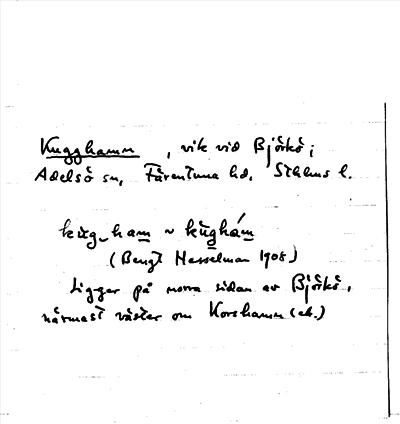 Kugghamn, vik vid Björkö i
Adelsö sn, Färentuna hd, Sthlms l.
kùg_ham ~ kùghám
(Bengt Hesselman 1908)
Ligger på norra sidan av Björkö,
närmast väster om Korshamn (ek.)